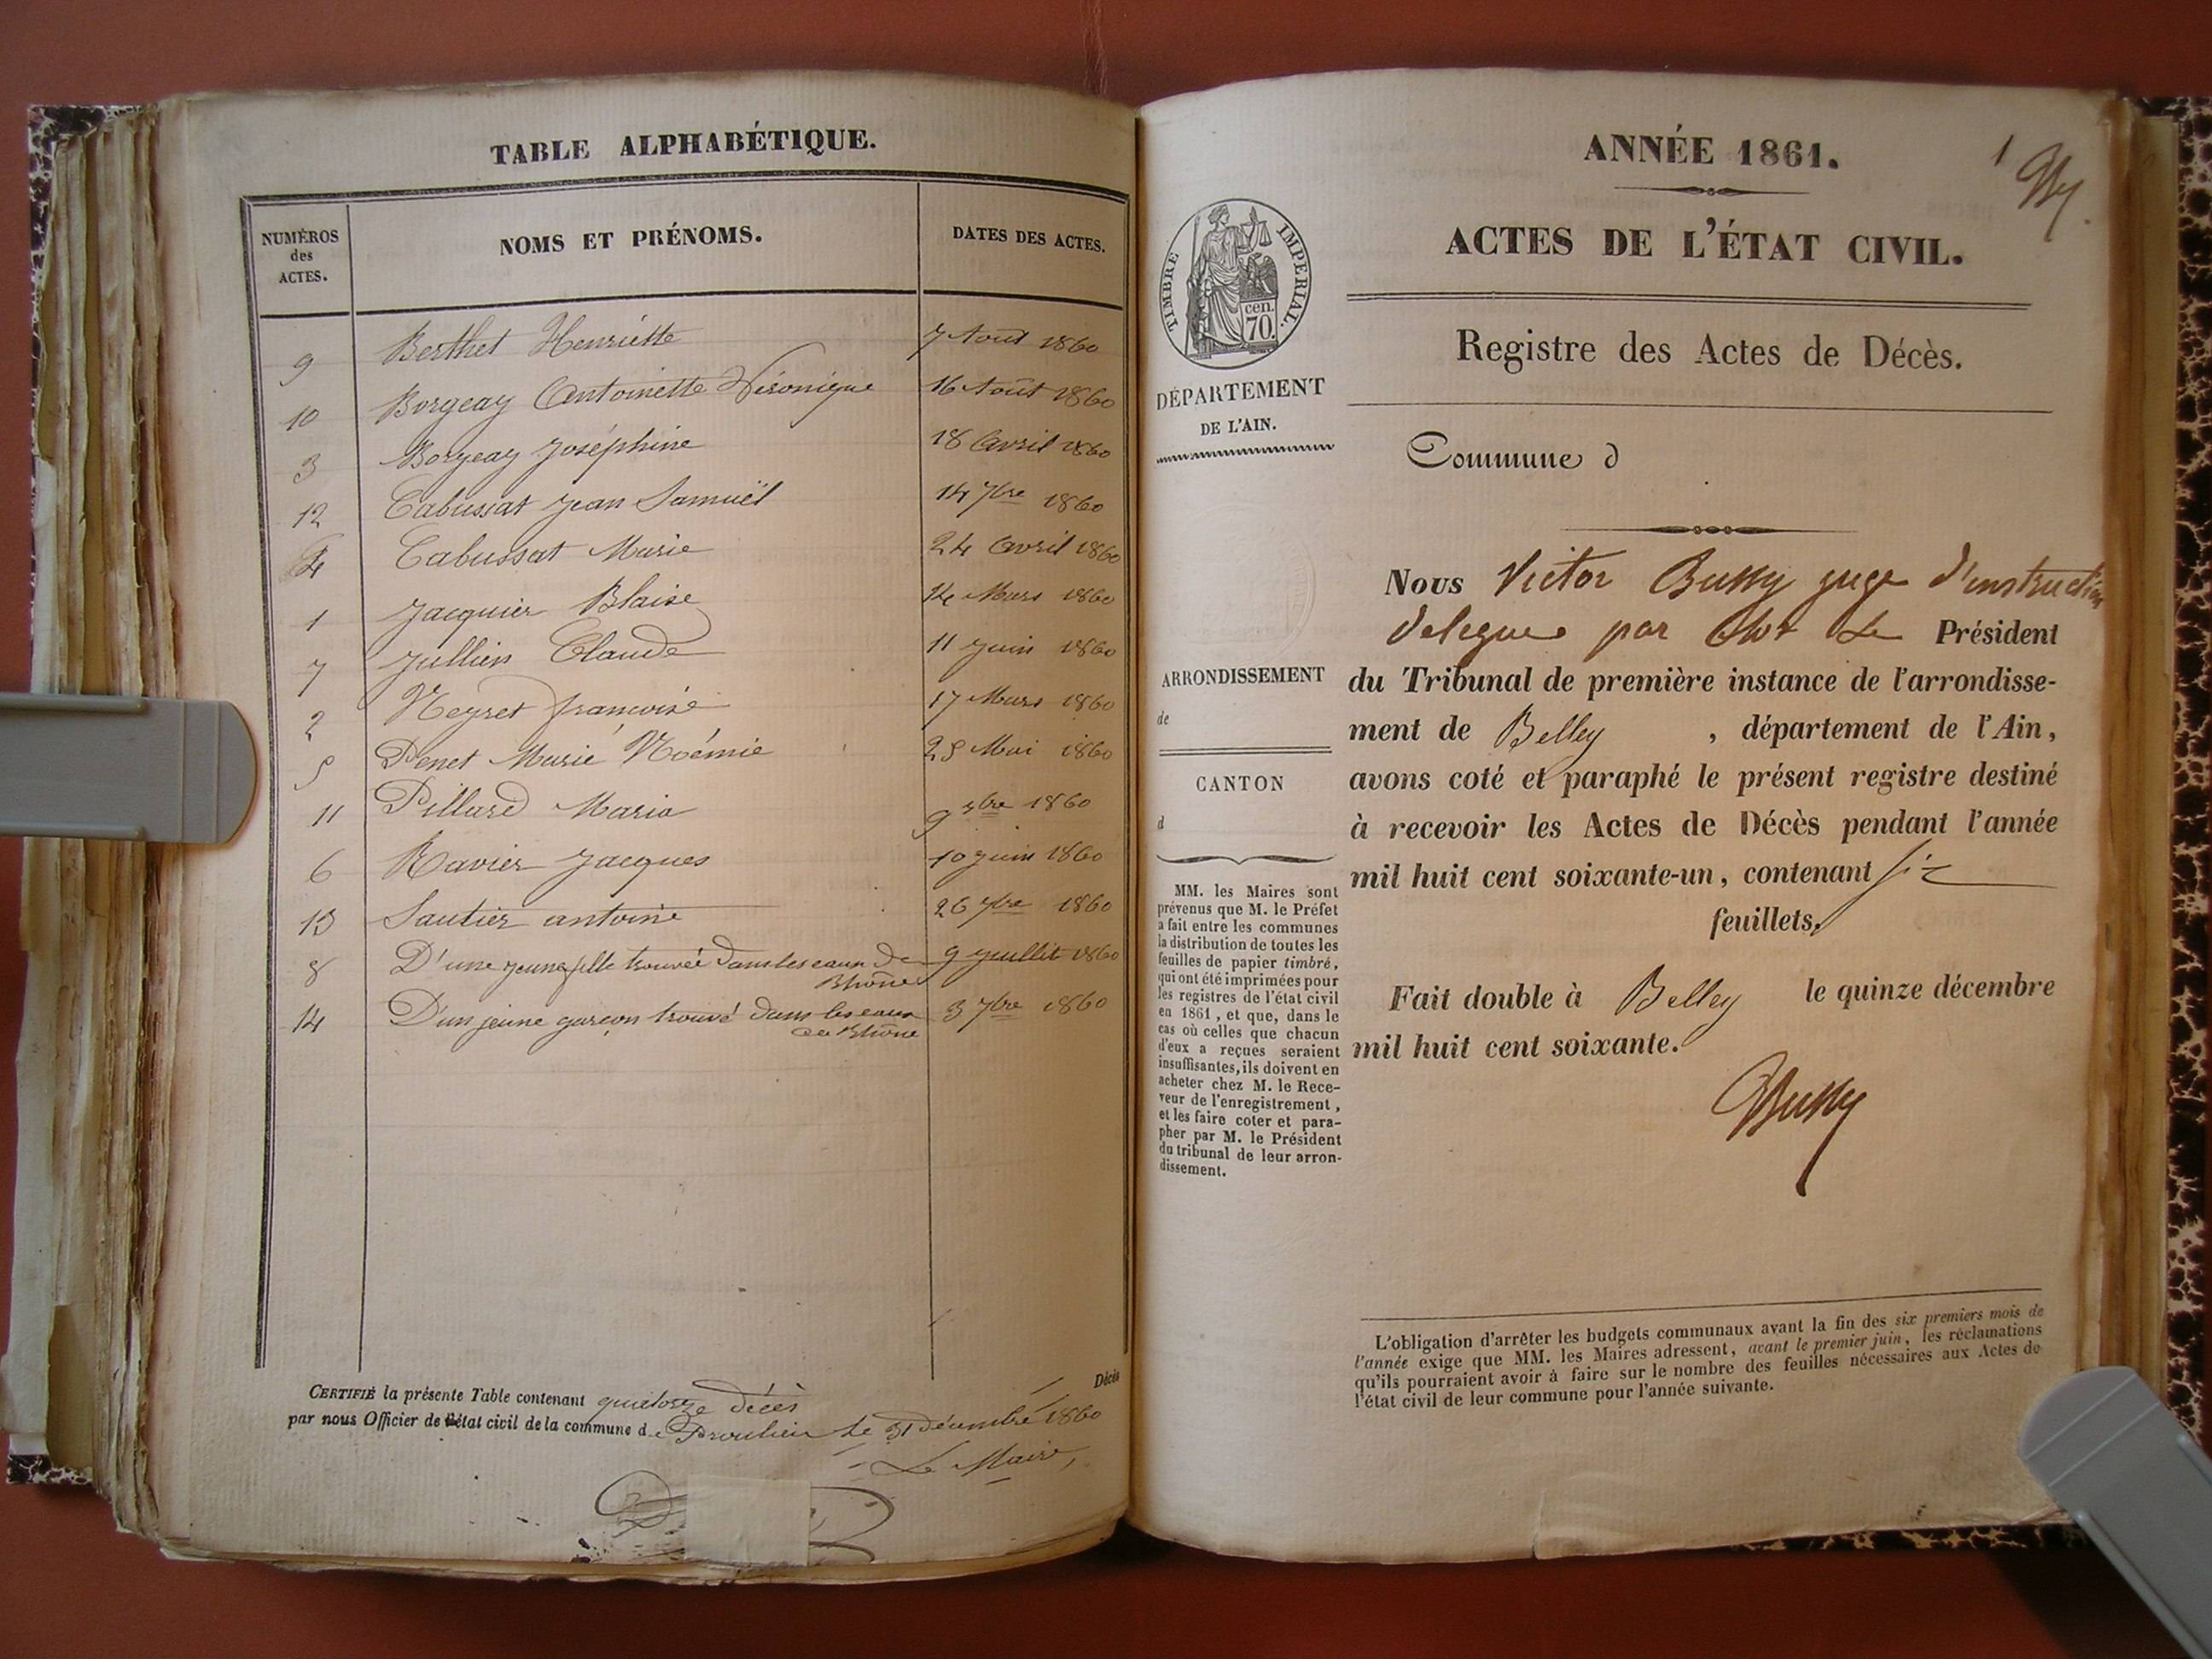 TABLE ALPHABÉTIQUE.
NUMÉROS
des
ACTES.
NOMS ET PRÉNOMS.
DATES DES ACTES.
9 Berthet Henriette 7 Août 1860
10 Borgeay Antoinette Véronique 16 Août 1860
3 Borgeay Joséphine 18 Avril 1860
12 Cabussat Jean Samuël 14 7bre 1860
4 Cabussat Marie 24 Avril 1860
1 Jacquier Blaise 14 Mars 1860
7 Jullien Claude 11 Juin 1860
2 Neyret françoise 17 Mars 1860
5 Penet Marie Noémie 25 Mai 1860
11 Pillard Maria 9 7bre 1860
6 Ravier Jacques 10 Juin 1860
13 Sautier antoine 26 7bre 1860
8 D'une jeune fille trouvée dans les eaux du 9 Juillet 1860
Rhône
14 D'un jeune garçon trouvé dans les eaux 3 7bre 1860
du Rhône
Décès
CERTIFIÉ la présente Table contenant quatorze décès
par nous Officier de l'état civil de la commune de Proulieu le 31 Décembre 1860
Le Maire,
ANNÉE 1861.
1
ACTES DE L'ÉTAT CIVIL.
TIMBRE IMPERIAL.
cen.
70.
Registre des Actes de Décès.
DÉPARTEMENT
DE L'AIN.
Commune d
Nous Victor Bussy juge d'instruction
délégué par le Président
du Tribunal de première instance de l'arrondisse-
ment de Belley , département de l'Ain,
avons coté et paraphé le présent registre destiné
à recevoir les Actes de Décès pendant l'année
mil huit cent soixante-un, contenant six
feuillets.
Fait double à Belley le quinze décembre
mil huit cent soixante.
Bussy
ARRONDISSEMENT
de
CANTON
d
MM. les Maires sont
prévenus que M. le Préfet
a fait entre les communes
la distribution de toutes les
feuilles de papier timbré,
qui ont été imprimées pour
les registres de l'état civil
en 1861, et que, dans le
cas où celles que chacun
d'eux a reçues seraient
insuffisantes, ils doivent en
acheter chez M. le Rece-
veur de l'enregistrement,
et les faire coter et para-
pher par M. le Président
du tribunal de leur arron-
dissement.
L'obligation d'arrêter les budgets communaux avant la fin des six premiers mois de
l'année exige que MM. les Maires adressent, avant le premier juin, les réclamations
qu'ils pourraient avoir à faire sur le nombre des feuilles nécessaires aux Actes de
l'état civil de leur commune pour l'année suivante.